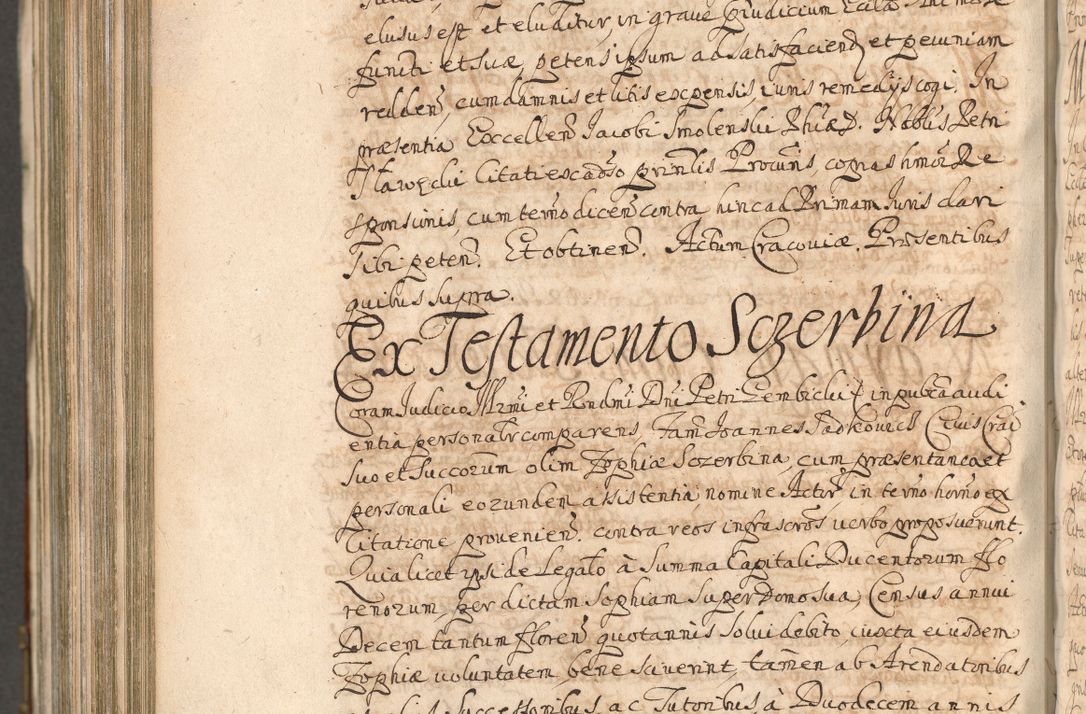 elusus est et eluditur, in grave præiudicium
funiti et suæ, petens ipsum ad satisfaciend et pecuniam
redden, cum damnis et litis expensis, iuris remedijs cogi. In
præsentia Excellen Jacobi Smolenski Phiæ D. Nobilis Petri
Stawecki citati ex adso prinlis Procuris, copias hmoi Re
sponsionis, cum termo dicen contra hinc ad Primam Juris dari
sibi peten. Et obtinen. Actum Cracoviæ. Præsentibus
quibus supra.
Ex Testamento Sczerbina
Coram Judicio Illrmi et Rndmi Dni Petri Gembicki in pubca audi
entia personalr comparens, Fam Joannes Sadkovicz Civis Crac
suo et succorum olim Zophiæ Sczerbina, cum præsentanea et
personali eorundem assistentia nomine Actor in termo horno ex
Citatione provenien. contra reos infrascros verbo proposuerunt.
Quia licet ipsi de Legato à summa Capitali Ducentorum flo
renorum, per dictam Sophiam super Domo sua, Census annui
Decem tantum floren quotannis solui debito, iuxta eiusdem
Zophiæ voluntatem, bene sciverint, tamen ab Arendatoribus
Successoribus ac Tutoribus à Duodecem annis